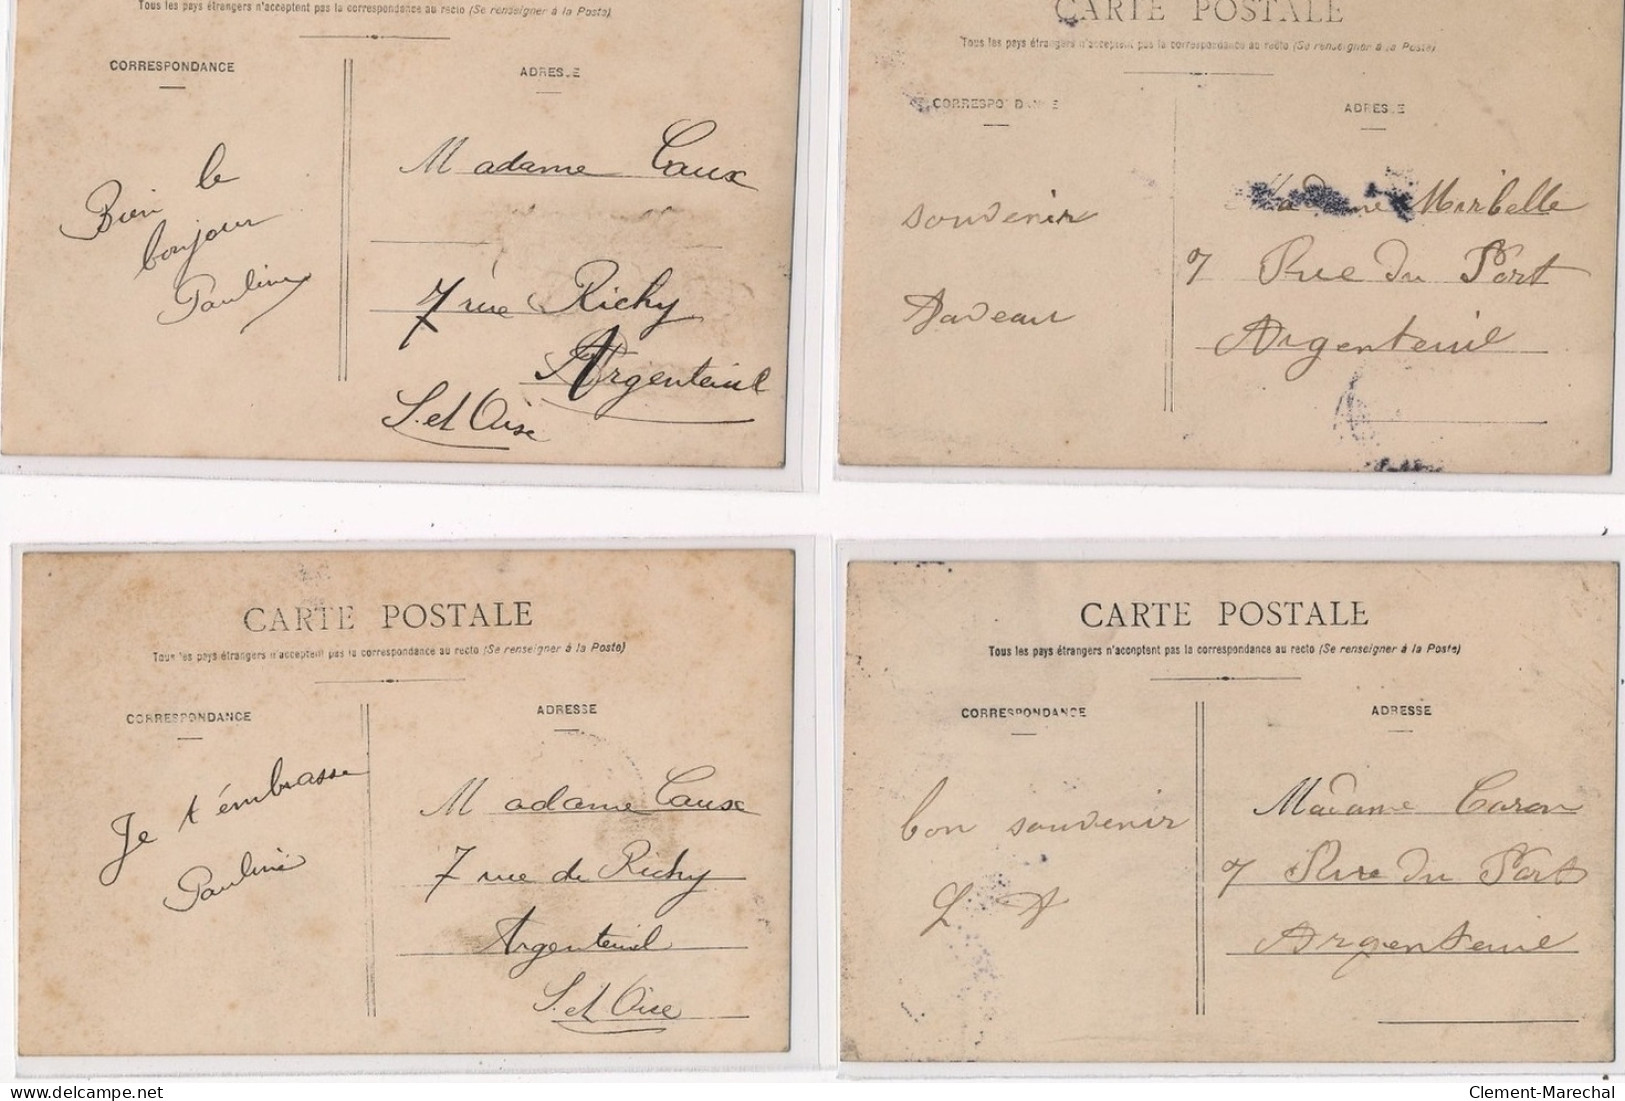 Tous les pays étrangers n'acceptent pas la correspondance au recto (Se renseigner à la Poste)
CORRESPONDANCE
ADRESSE
Bien le
bonjour
Pauline
Madame Caux
7 rue Richy
Argenteuil
S. et Oise
CARTE POSTALE
Tous les pays étrangers n'acceptent pas la correspondance au recto (Se renseigner à la Poste)
CORRESPONDANCE
ADRESSE
souvenir
Madame Maribelle
7 Rue Du Port
Argenteuil
CARTE POSTALE
Tous les pays étrangers n'acceptent pas la correspondance au recto (Se renseigner à la Poste)
CORRESPONDANCE
ADRESSE
Je t'émbrasse
Pauline
Madame Caux
7 rue de Richy
Argenteuil
S. et Oise
CARTE POSTALE
Tous les pays étrangers n'acceptent pas la correspondance au recto (Se renseigner à la Poste)
CORRESPONDANCE
ADRESSE
bon souvenir
Madame Caron
7 Rue Du Port
Argenteuil
Clement-Marechal